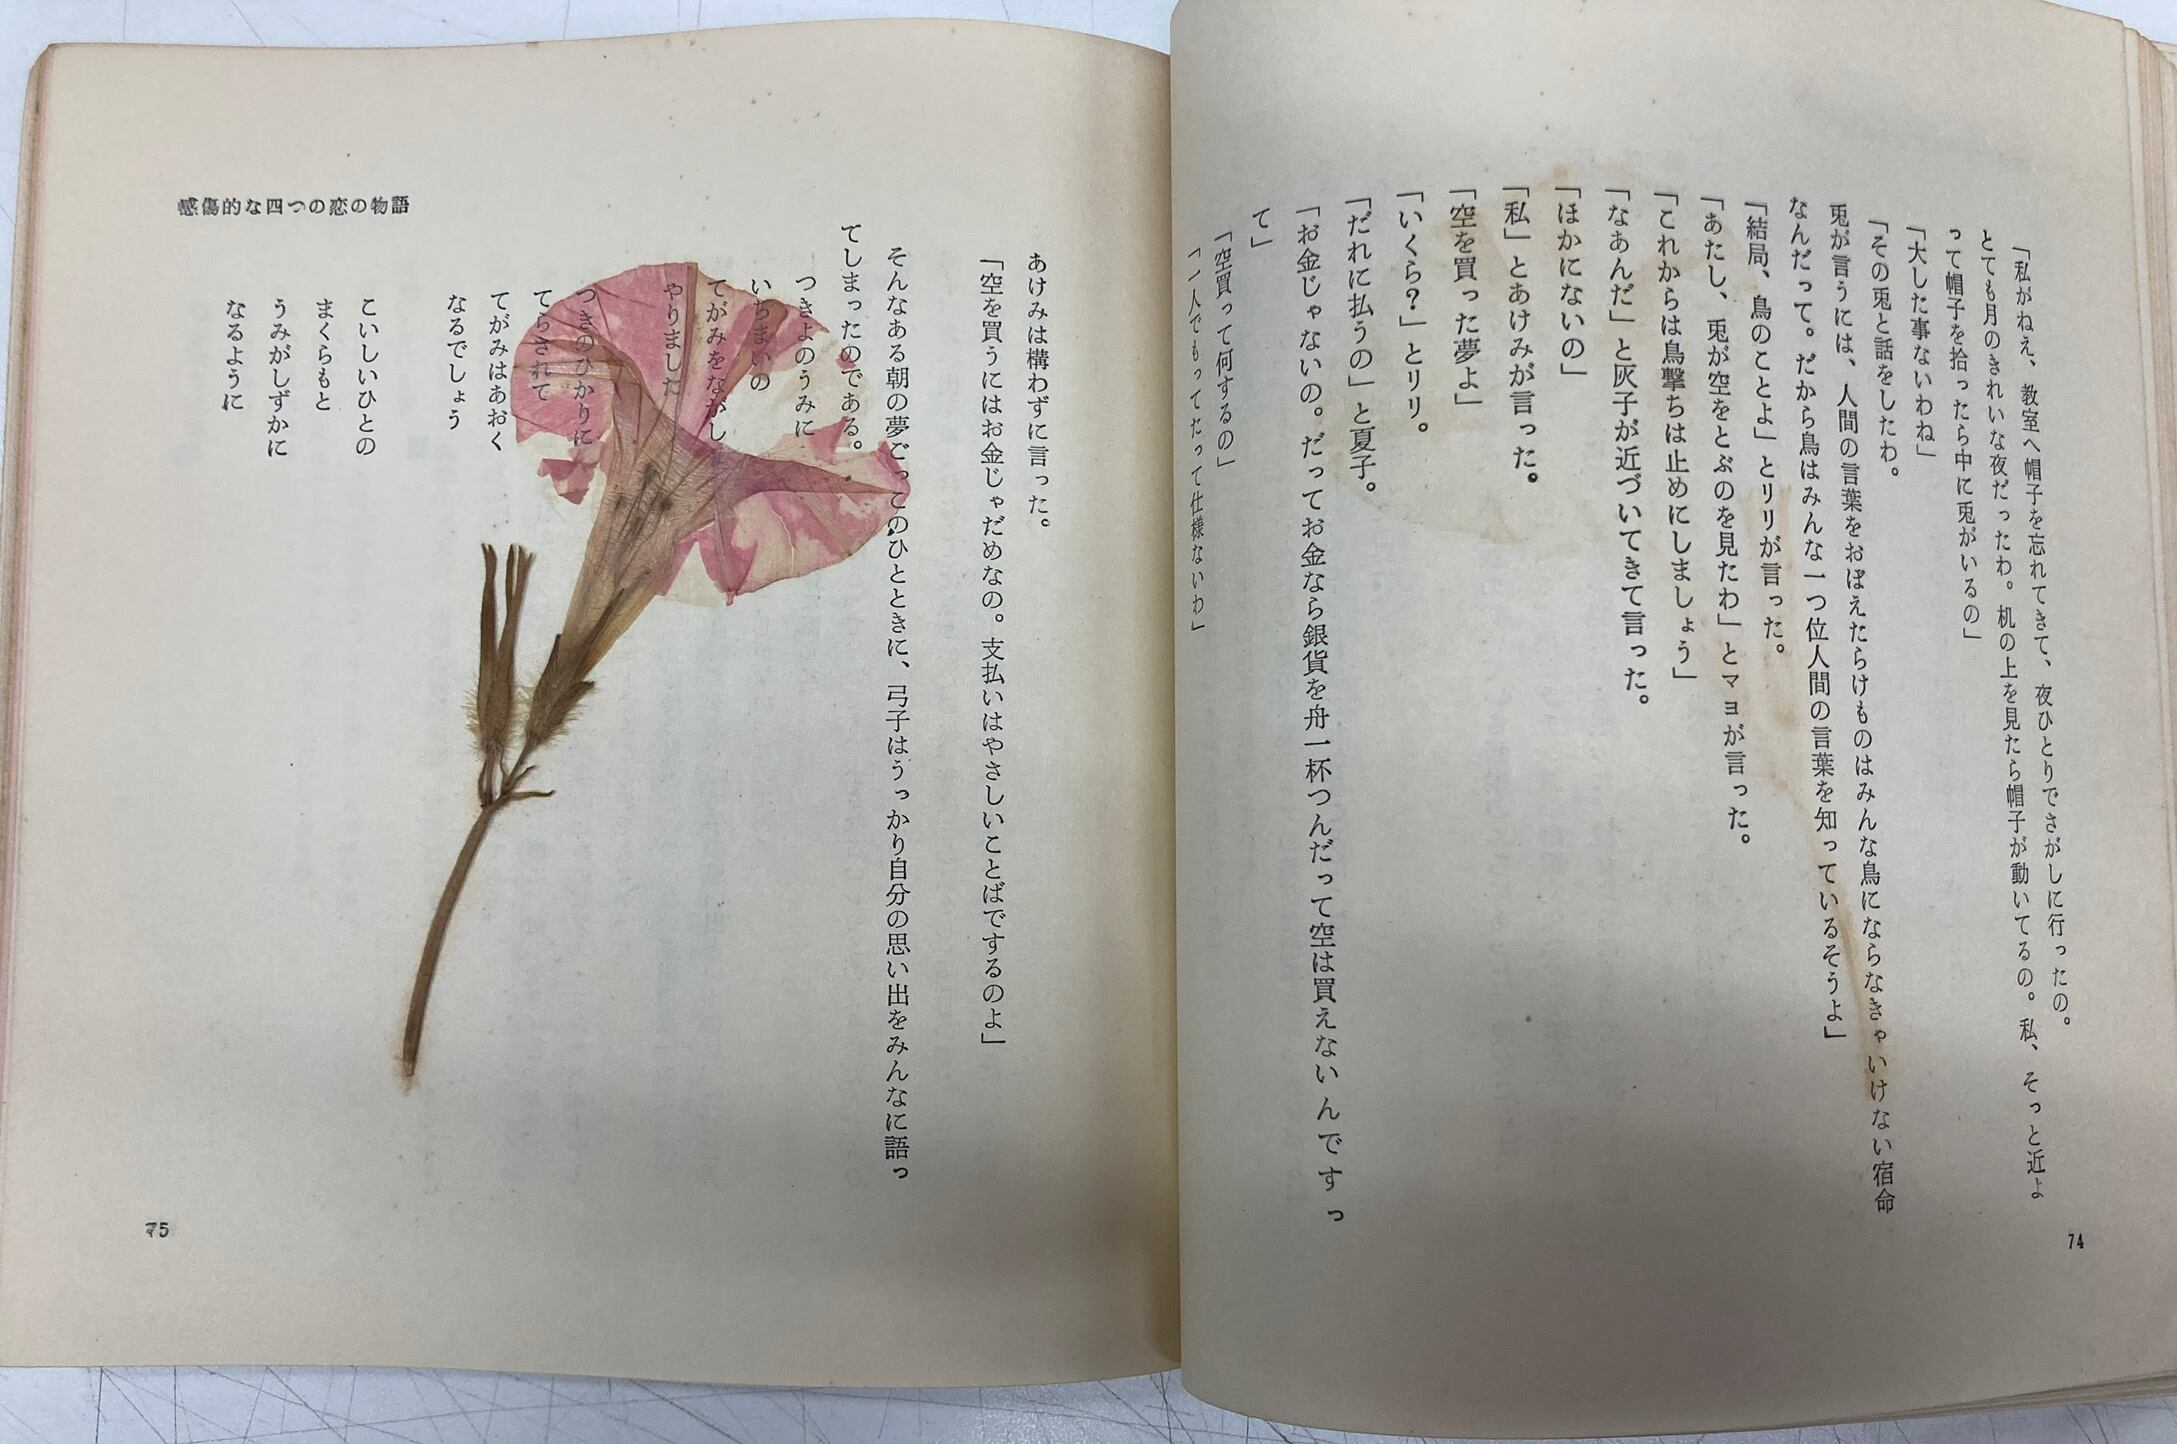 「私がねえ、教室へ帽子を忘れてきて、夜ひとりでさがしに行ったの。
とても月のきれいな夜だったわ。机の上を見たら帽子が動いてるの。私、そっと近よ
って帽子を拾ったら中に兎がいるの」
「大した事ないわね」
「その兎と話をしたわ。
兎が言うには、人間の言葉をおぼえたらけものはみんな鳥にならなきゃいけない宿命
なんだって。だから鳥はみんな一つ位人間の言葉を知っているそうよ」
「結局、鳥のことよ」とリリが言った。
「あたし、兎が空をとぶのを見たわ」とマヨが言った。
「これからは鳥撃ちは止めにしましょう」
「なあんだ」と灰子が近づいてきて言った。
「ほかにないの」
「私」とあけみが言った。
「空を買った夢よ」
「いくら？」とリリ。
「だれに払うの」と夏子。
「お金じゃないの。だってお金なら銀貨を舟一杯つんだって空は買えないんですっ
て」
「空買って何するの」
「一人でもってたって仕様ないわ」
74
あけみは構わずに言った。
「空を買うにはお金じゃだめなの。支払いはやさしいことばでするのよ」
そんなある朝の夢ごっこのひとときに、弓子はうっかり自分の思い出をみんなに語っ
てしまったのである。
つきよのうみに
いちまいの
てがみをながし
やりました
つきのひかりに
てらされて
てがみはあおく
なるでしょう
こいしいひとの
まくらもと
うみがしずかに
なるように
感傷的な四つの恋の物語
75